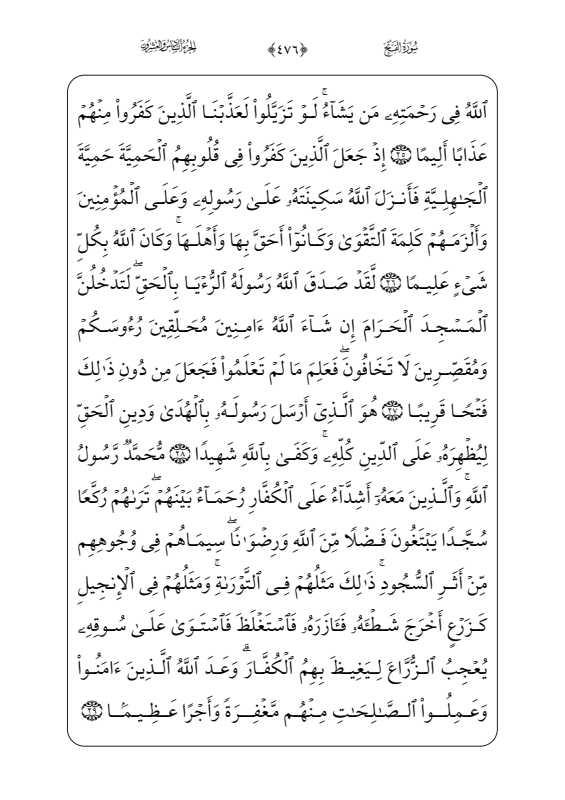 سُورَةُ الفَتْحِ ﴿٤٧٦﴾ الجُزْءُ السَّادِسُ وَالعِشْرُونَ
ٱللَّهُ فِى رَحْمَتِهِۦ مَن يَشَآءُ ۚ لَوْ تَزَيَّلُوا۟ لَعَذَّبْنَا ٱلَّذِينَ كَفَرُوا۟ مِنْهُمْ
عَذَابًا أَلِيمًا ۝٢٥ إِذْ جَعَلَ ٱلَّذِينَ كَفَرُوا۟ فِى قُلُوبِهِمُ ٱلْحَمِيَّةَ حَمِيَّةَ
ٱلْجَٰهِلِيَّةِ فَأَنزَلَ ٱللَّهُ سَكِينَتَهُۥ عَلَىٰ رَسُولِهِۦ وَعَلَى ٱلْمُؤْمِنِينَ
وَأَلْزَمَهُمْ كَلِمَةَ ٱلتَّقْوَىٰ وَكَانُوٓا۟ أَحَقَّ بِهَا وَأَهْلَهَا ۚ وَكَانَ ٱللَّهُ بِكُلِّ
شَىْءٍ عَلِيمًا ۝٢٦ لَّقَدْ صَدَقَ ٱللَّهُ رَسُولَهُ ٱلرُّءْيَا بِٱلْحَقِّ ۖ لَتَدْخُلُنَّ
ٱلْمَسْجِدَ ٱلْحَرَامَ إِن شَآءَ ٱللَّهُ ءَامِنِينَ مُحَلِّقِينَ رُءُوسَكُمْ
وَمُقَصِّرِينَ لَا تَخَافُونَ ۖ فَعَلِمَ مَا لَمْ تَعْلَمُوا۟ فَجَعَلَ مِن دُونِ ذَٰلِكَ
فَتْحًا قَرِيبًا ۝٢٧ هُوَ ٱلَّذِىٓ أَرْسَلَ رَسُولَهُۥ بِٱلْهُدَىٰ وَدِينِ ٱلْحَقِّ
لِيُظْهِرَهُۥ عَلَى ٱلدِّينِ كُلِّهِۦ ۚ وَكَفَىٰ بِٱللَّهِ شَهِيدًا ۝٢٨ مُّحَمَّدٌ رَّسُولُ
ٱللَّهِ ۚ وَٱلَّذِينَ مَعَهُۥٓ أَشِدَّآءُ عَلَى ٱلْكُفَّارِ رُحَمَآءُ بَيْنَهُمْ ۖ تَرَىٰهُمْ رُكَّعًا
سُجَّدًا يَبْتَغُونَ فَضْلًا مِّنَ ٱللَّهِ وَرِضْوَٰنًا ۖ سِيمَاهُمْ فِى وُجُوهِهِم
مِّنْ أَثَرِ ٱلسُّجُودِ ۚ ذَٰلِكَ مَثَلُهُمْ فِى ٱلتَّوْرَىٰةِ ۚ وَمَثَلُهُمْ فِى ٱلْإِنجِيلِ
كَزَرْعٍ أَخْرَجَ شَطْـَٔهُۥ فَـَٔازَرَهُۥ فَٱسْتَغْلَظَ فَٱسْتَوَىٰ عَلَىٰ سُوقِهِۦ
يُعْجِبُ ٱلزُّرَّاعَ لِيَغِيظَ بِهِمُ ٱلْكُفَّارَ ۗ وَعَدَ ٱللَّهُ ٱلَّذِينَ ءَامَنُوا۟
وَعَمِلُوا۟ ٱلصَّٰلِحَٰتِ مِنْهُم مَّغْفِرَةً وَأَجْرًا عَظِيمًۢا ۝٢٩